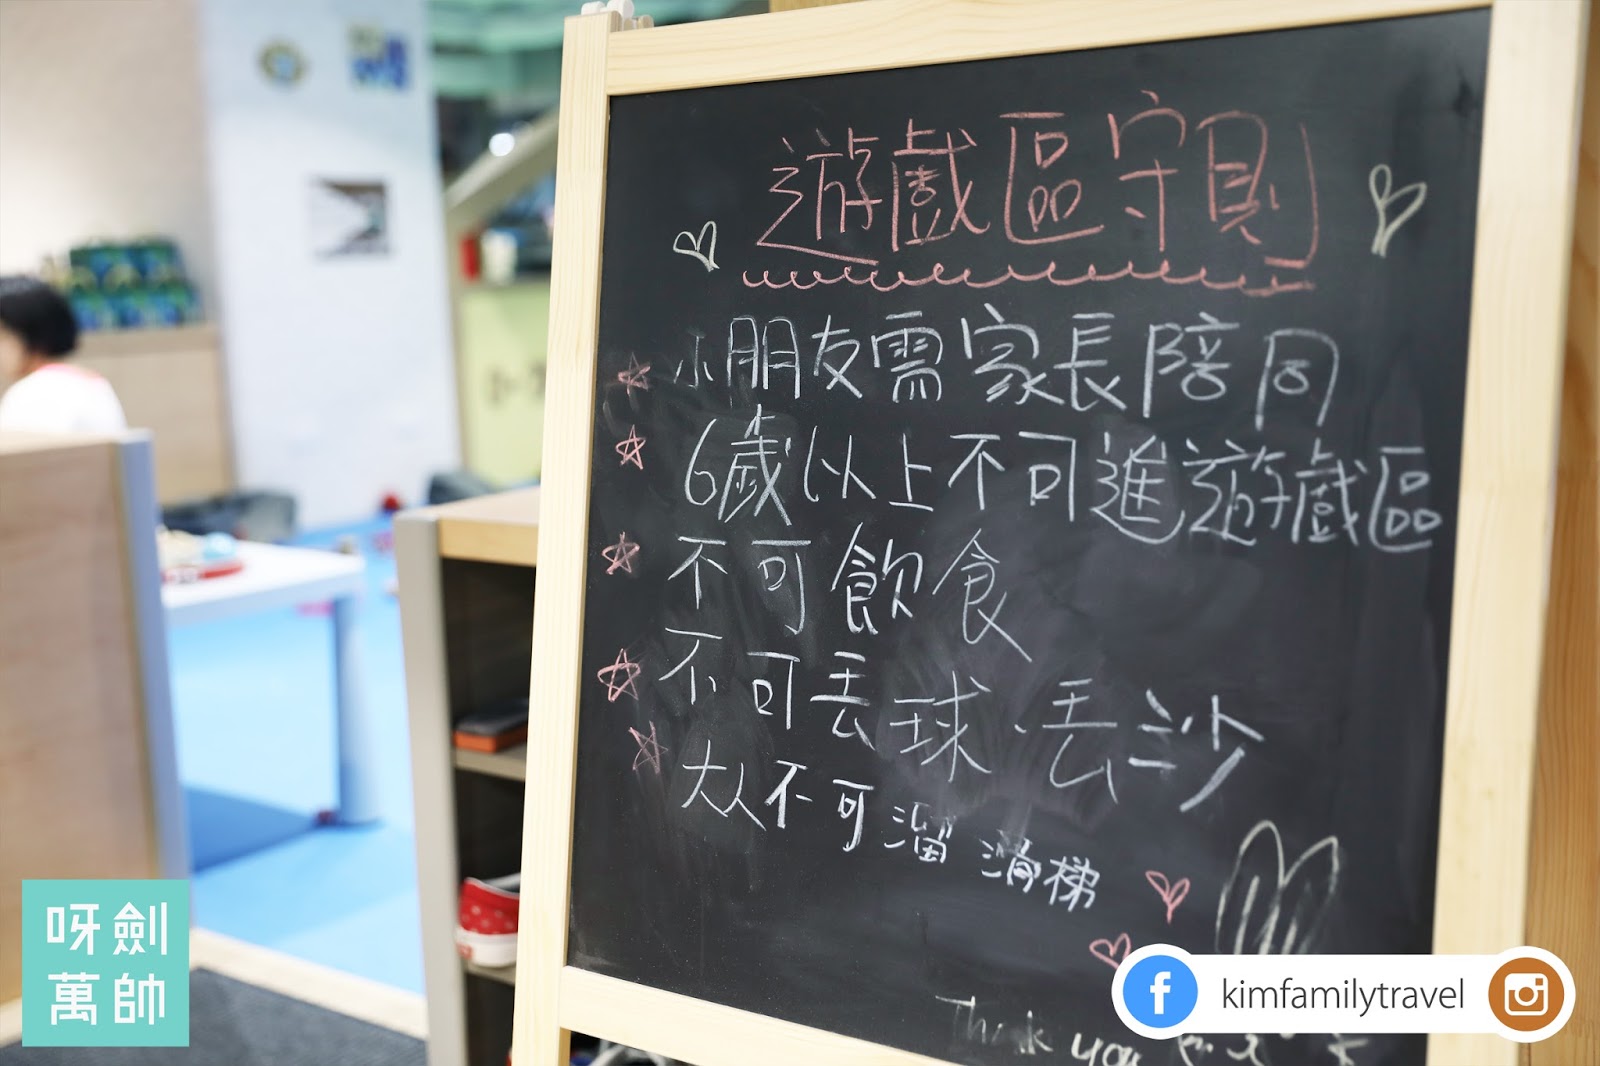 遊戲區守則
小朋友需家長陪同
6歲以上不可進遊戲區
不可飲食
不可丟球.丟沙
大人不可溜滑梯
Thank you
呀劍
萬帥
kimfamilytravel